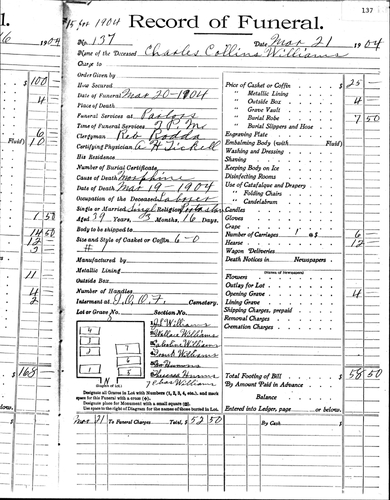 137
1904
Record of Funeral.
No. 137 Date Mar 21 1904
Name of the Deceased Charles Collins Williams
Charge to
Order Given by
How Secured
Date of Funeral Mar 20-1904
Place of Death
Funeral Services at Parlors
Time of Funeral Services 2 P. M.
Clergyman Rev Rodda
Certifying Physician A H Tickell
His Residence
Number of Burial Certificate
Cause of Death Morphine
Date of Death Mar 19-1904
Occupation of the Deceased Laborer
Single or Married Singl Religion Protestan
Aged 39 Years, 3 Months, 16 Days.
Body to be shipped to
Size and Style of Casket or Coffin 6-0
# 1
Manufactured by
Metallic Lining
Outside Box
Number of Handles
Interment at I.O.O.F. Cemetery.
Lot or Grave No. Section No.
Wallace Williams
Nicholas Williams
Williams
7 Chas Williams
Diagram of Lot.
Designate all Graves in Lot with Numbers (1, 2, 3, 4, etc.), and mark
space for this Funeral with a cross (+).
Designate place for Monument with a small square (□).
Use space in right of Diagram for the names of those buried in Lot.
Mar 21 To Funeral Charges Total, $ 52 50
Price of Casket or Coffin $ 25
" Metallic Lining
" Outside Box 4
" Grave Vault
" Burial Robe 7 50
" Burial Slippers and Hose
Engraving Plate
Embalming Body (with Fluid)
Washing and Dressing
Shaving
Keeping Body on Ice
Disinfecting Rooms
Use of Catafalque and Drapery
" Folding Chairs
" Candelabrum
Candles
Gloves
Crape
Number of Carriages 1 @ $ 6
Hearse 12
Wagon Deliveries
Death Notices in Newspapers
(Names of Newspapers)
Flowers
Outlay for Lot
Opening Grave 4
Lining Grave
Shipping Charges, prepaid
Removal Charges
Cremation Charges
Total Footing of Bill $ 58 50
By Amount Paid in Advance
Balance
Entered into Ledger, page or below.
By Cash $